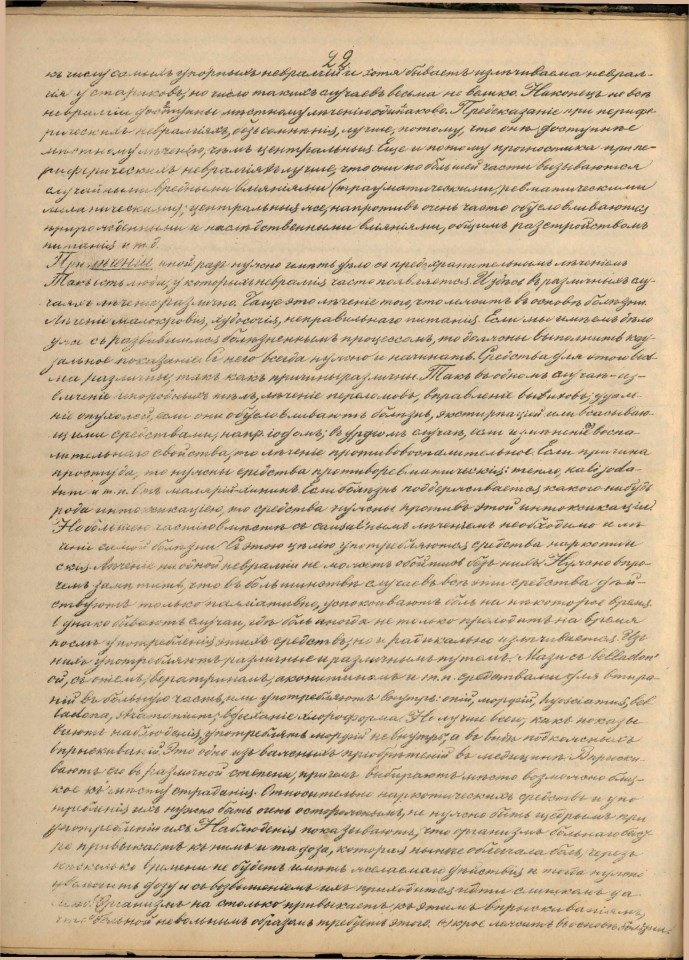 22
къ числу самыхъ упорныхъ невралгій и хотя бываетъ излѣчиваема неврал-
гія у стариковъ, но число такихъ случаевъ весьма не велико. Наконецъ не всѣ
невралгіи доступны мѣстному лѣченію одинаково. Предсказаніе при перифе-
рическихъ невралгіяхъ, безъ сомнѣнія, лучше, потому, что онѣ доступнѣе
мѣстному лѣченію, чѣмъ центральныя. Еще и потому прогностика при пе-
риферическихъ невралгіяхъ лучше, что они по бо́льшей части вызываются
случайными вредными вліяніями (травматическими, ревматическими
механическими); центральныя же, напротивъ очень часто обусловливаются
прирожденными и наслѣдственными вліяніями, общимъ разстройствомъ
питанія и т.д.
При лѣченіи иной разъ нужно имѣть дѣло съ предохранительнымъ лѣченіемъ
Такъ есть люди, у которыхъ невралгія часто появляется. И здѣсь въ различныхъ слу-
чаяхъ лѣченіе различно. Чаще это лѣченіе того, что лежитъ въ основѣ болѣзни.
Лѣченіе малокровія, худосочія, неправильнаго питанія. Если мы имѣемъ дѣло
уже съ развившимся болѣзненнымъ процессомъ, то должны выполнить кау-
зальное показаніе и съ него всегда нужно и начинать. Средства для этого весь-
ма различны, такъ какъ причины различны. Такъ въ одномъ случаѣ - из-
влеченіе инородныхъ тѣлъ, лѣченіе переломовъ, вправленіе вывиховъ; удале-
ніе опухолей, если они обусловливаютъ болѣзнь, экстирпаціей или всасываю-
щими средствами, напр. іодомъ; въ другомъ случаѣ, если измѣненія воспа-
лительнаго свойства, то лѣченіе противовоспалительное. Если причина
простуда, то нужны средства противоревматическія: тепло, kali joda-
tum и т.п. при маляріи хининъ. Если болѣзнь поддерживается какого нибудь
рода интоксикаціею, то средства нужны противъ этой интоксикаціи.
Но большею частію вмѣстѣ съ causal'нымъ лѣченіемъ необходимо и лѣ-
ченіе самой болѣзни. Съ этою цѣлію употребляются средства наркотиче-
скія. Лѣченіе ни одной невралгіи не можетъ обойтись безъ нихъ. Нужно впро-
чемъ замѣтить, что въ большинствѣ случаевъ всѣ эти средства дѣй-
ствуютъ только палліативно, успокоиваютъ боль на нѣкоторое время.
Однако бываютъ случаи, гдѣ боль иногда не только проходитъ на время
послѣ употребленія этихъ средствъ, но и радикально излѣчивается. Из
нихъ употребляютъ различные и различнымъ путемъ. Мази съ belladon'
ой, съ опіемъ, вератриномъ, аконитиномъ и т.п. средствами для втира-
ній въ больную часть, или употребляютъ внутрь: опій, морфій, hyosciamus, bel-
ladona, вдыханіе хлороформа. Но лучше всего, какъ показы-
ваютъ наблюденія, употреблять морфій не внутрь, а въ видѣ подкожныхъ
впрыскиваній. Это одно изъ важныхъ пріобрѣтеній въ медицинѣ. Впрыски-
ваютъ его въ различной степени, причемъ выбираютъ мѣсто возможно близ-
кое къ мѣсту страданія. Относительно наркотическихъ средствъ и упо-
требленія ихъ нужно быть очень осторожнымъ, не нужно быть щедрымъ при
употребленіи ихъ. Наблюденія показываютъ, что организмъ больнаго скоро
привыкаетъ къ нимъ и та доза, которая нынѣ облегчала боль, черезъ
нѣсколько времени не будетъ имѣть желаемаго дѣйствія и тогда нужно
увеличить дозу и съ возвышеніемъ ихъ приходится идти слишкомъ да-
леко. Организмъ на столько привыкаетъ къ этимъ впрыскиваніямъ,
что больной невольнымъ образомъ требуетъ этого.